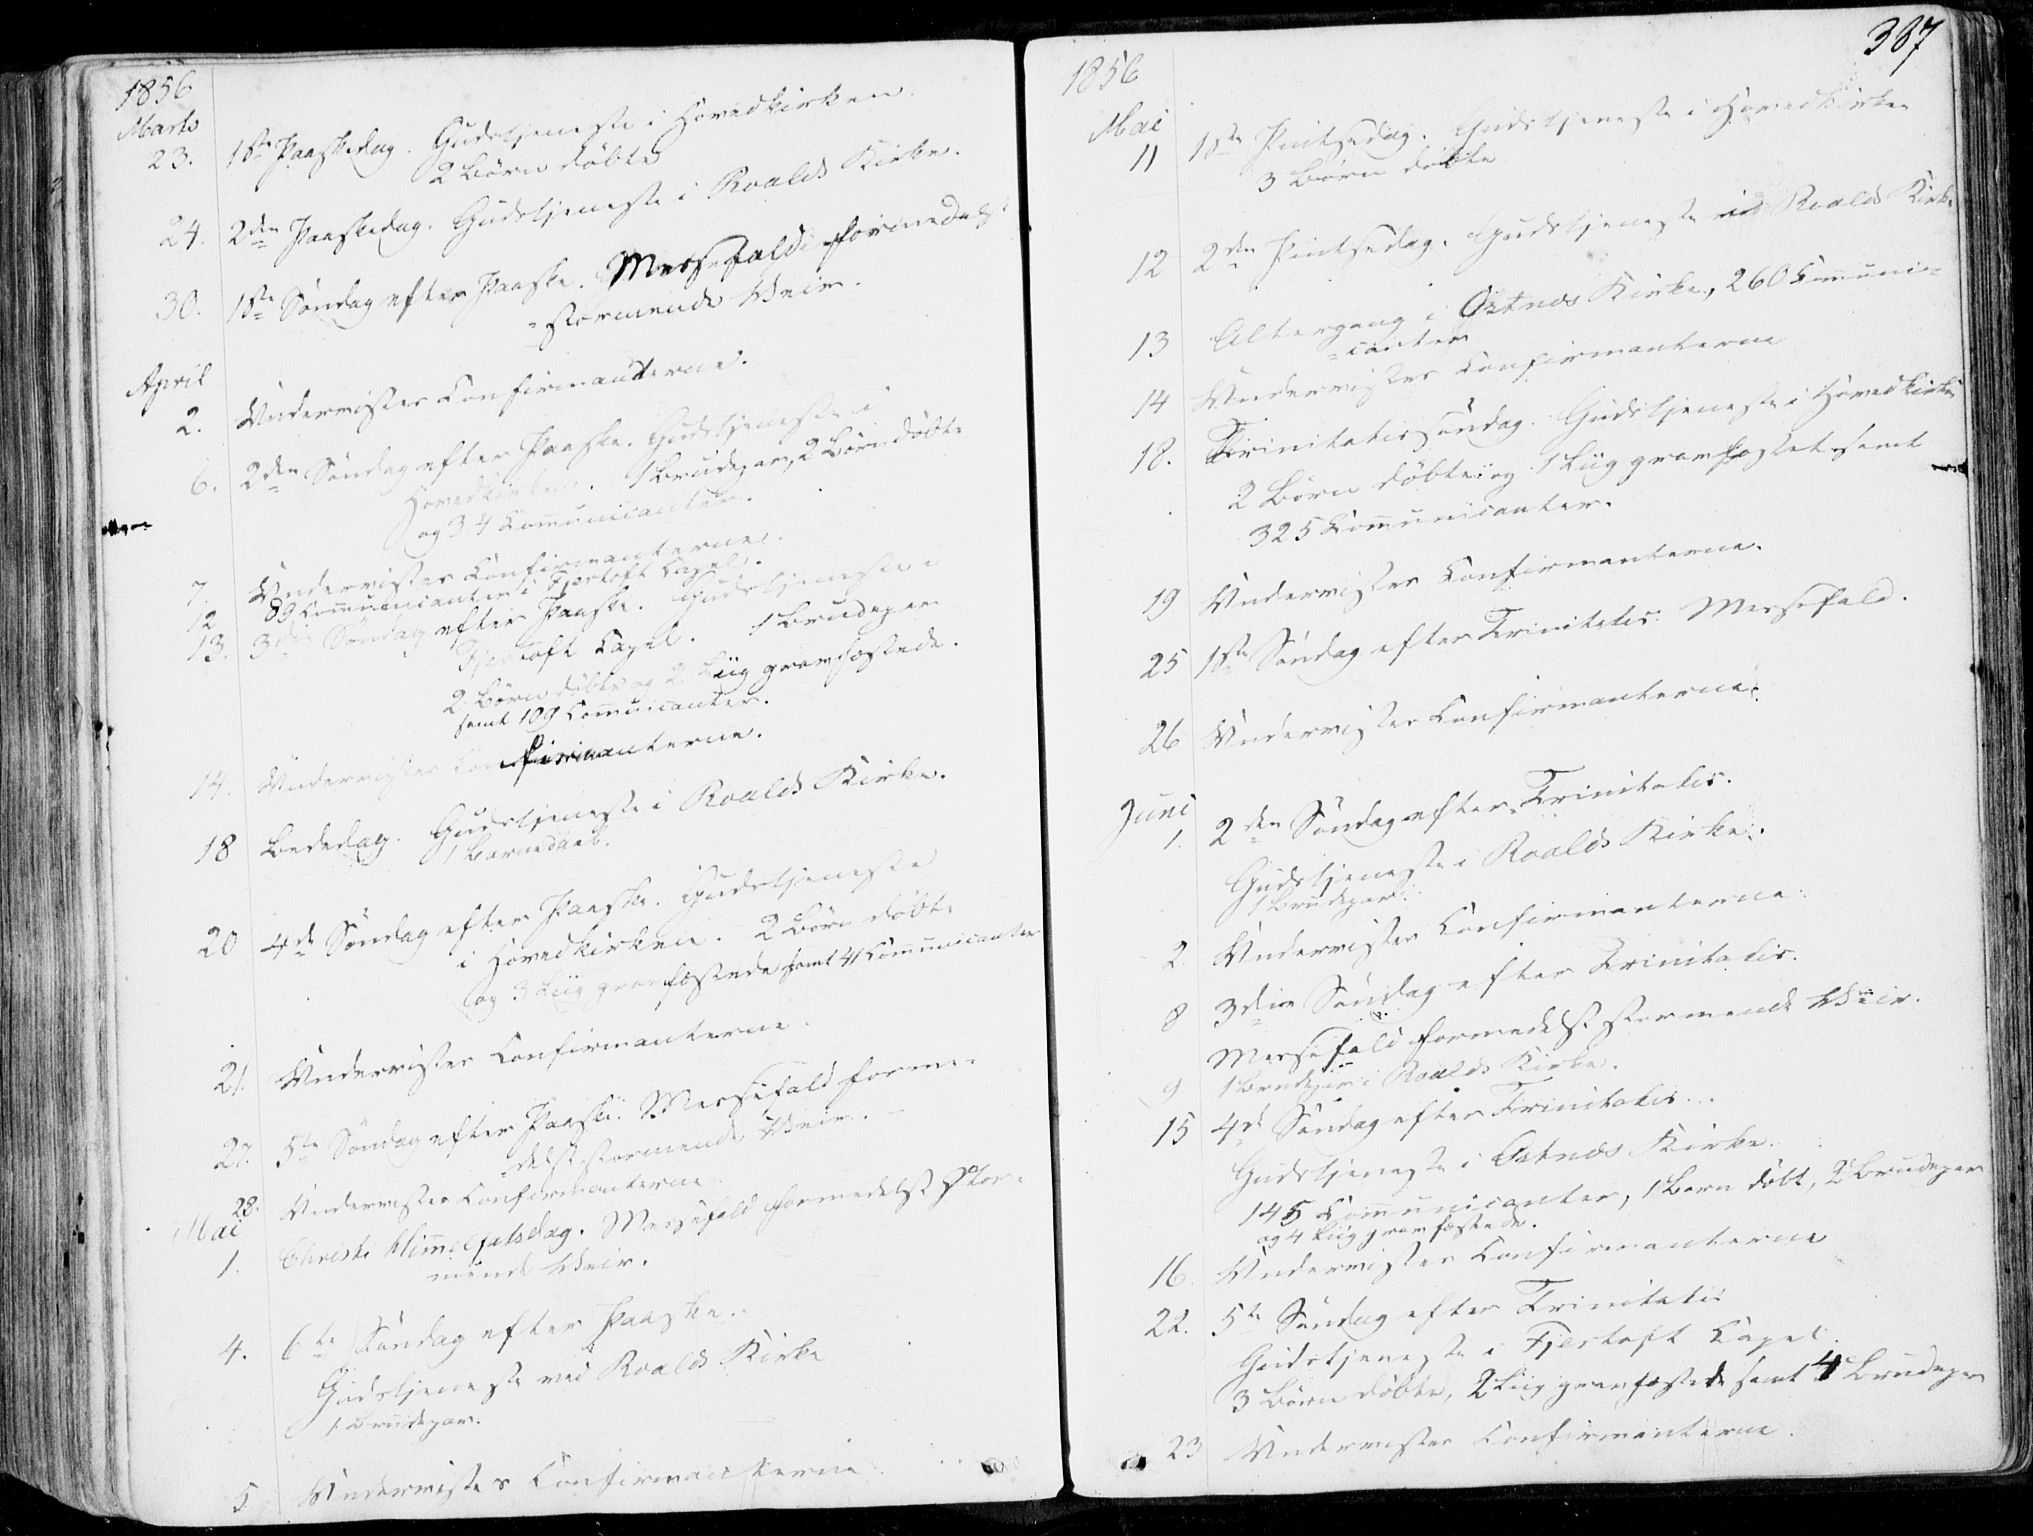 1856
Marts
23. 1ste Paaskedag. Gudstjeneste i Hovedkirken.
2 Børn døbte
24. 2den Paaskedag. Gudstjeneste i Roalds Kirke.
30. 1ste Søndag efter Paaske. Messefald formedelst
stormende Veir.
April
2. Underviistes Confirmanterne.
6. 2den Søndag efter Paaske. Gudstjeneste i
Hovedkirken. 1 Brudepar, 2 Børn døbte
og 34 Communicanter.
7. Underviistes Confirmanterne.
12 89 Communicanter i Fjertoft Capel.
13. 3die Søndag efter Paaske. Gudstjeneste i
Fjertoft Capel. 1 Brudepar
2 Børn døbte og 2 Liig gravfæstede.
samt 109 Communicanter.
14. Underviistes Confirmanterne.
18 Bededag. Gudstjeneste i Roalds Kirke.
1 Barnedaab.
20 4de Søndag efter Paaske. Gudstjeneste
i Hovedkirken. 2 Børn døbte
og 3 Liig gravfæstede samt 41 Communicanter
21. Underviistes Confirmanterne.
27. 5te Søndag efter Paaske. Messefald forme-
delst stormende Veir.
28. Underviistes Confirmanterne.
Mai
1. Christi Himmelfartsdag. Messefald formedelst stor-
mende Veir.
4. 6te Søndag efter Paaske.
Gudstjeneste ved Roalds Kirke
1 Brudepar.
5 Underviistes Confirmanterne.
387
1856
Mai
11 1ste Pintsedag. Gudstjeneste i Hovedkirken
3 Børn døbte
12 2den Pintsedag. Gudstjeneste ved Roalds Kirke
13 Altergang i Østnæs Kirke, 260 Communi-
canter
14 Underviistes Confirmanterne
18. Trinitatissøndag. Gudstjeneste i Hovedkirken
2 Børn døbte og 1 Liig gravfæstet samt
325 Communicanter.
19 Underviistes Confirmanterne.
25 1ste Søndag efter Trinitatis. Messefald.
26 Underviistes Confirmanterne.
Juni
1. 2den Søndag efter Trinitatis.
Gudstjeneste i Roalds Kirke.
1 Brudepar.
2. Underviistes Confirmanterne.
8 3die Søndag efter Trinitatis.
Messefald formedelst stormende Veir.
9 1 Brudepar i Roalds Kirke.
15 4de Søndag efter Trinitatis.
Gudstjeneste i Østnæs Kirke.
145 Communicanter, 1 Barn døbt, 2 Brudepar
og 4 Liig gravfæstede.
16. Underviistes Confirmanterne
22. 5te Søndag efter Trinitatis
Gudstjeneste i Fjertoft Capel.
3 Børn døbte, 2 Liig gravfæstede samt 4 Brudepar
23 Underviistes Confirmanterne.